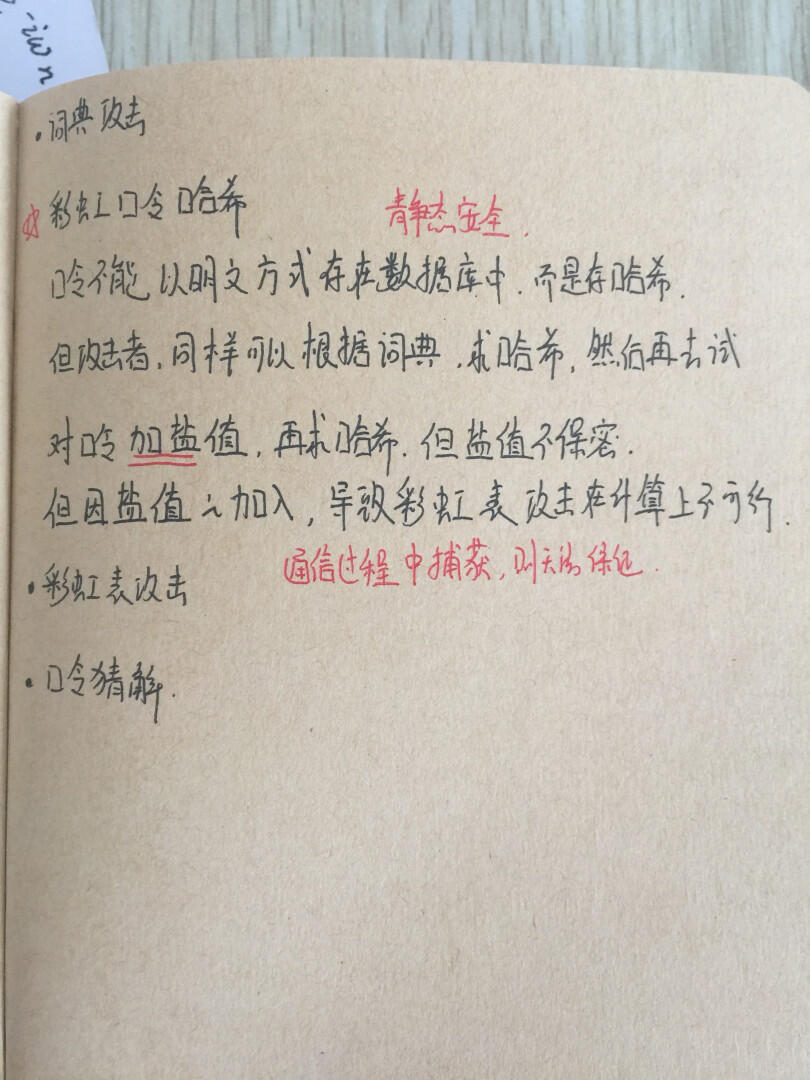 -iωn
·词典攻击
☆彩虹口令哈希
静态安全.
口令不能以明文方式存在数据库中.而是存哈希.
但攻击者,同样可以根据词典,求哈希,然后再去试
对口令加盐值,再求哈希.但盐值不保密.
但因盐值之加入,导致彩虹表攻击在计算上不可行.
通信过程中捕获,则无法保证.
·彩虹表攻击
·口令猜解.